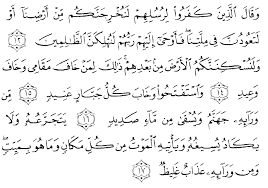 وَقَالَ ٱلَّذِينَ كَفَرُوا۟ لِرُسُلِهِمْ لَنُخْرِجَنَّكُم مِّنْ أَرْضِنَآ أَوْ
لَتَعُودُنَّ فِى مِلَّتِنَا ۖ فَأَوْحَىٰٓ إِلَيْهِمْ رَبُّهُمْ لَنُهْلِكَنَّ ٱلظَّـٰلِمِينَ ١٣
وَلَنُسْكِنَنَّكُمُ ٱلْأَرْضَ مِنۢ بَعْدِهِمْ ۚ ذَٰلِكَ لِمَنْ خَافَ مَقَامِى وَخَافَ
وَعِيدِ ١٤ وَٱسْتَفْتَحُوا۟ وَخَابَ كُلُّ جَبَّارٍ عَنِيدٍ ١٥ مِّن
وَرَآئِهِۦ جَهَنَّمُ وَيُسْقَىٰ مِن مَّآءٍ صَدِيدٍ ١٦ يَتَجَرَّعُهُۥ وَلَا
يَكَادُ يُسِيغُهُۥ وَيَأْتِيهِ ٱلْمَوْتُ مِن كُلِّ مَكَانٍ وَمَا هُوَ بِمَيِّتٍ ۖ
وَمِن وَرَآئِهِۦ عَذَابٌ غَلِيظٌ ١٧